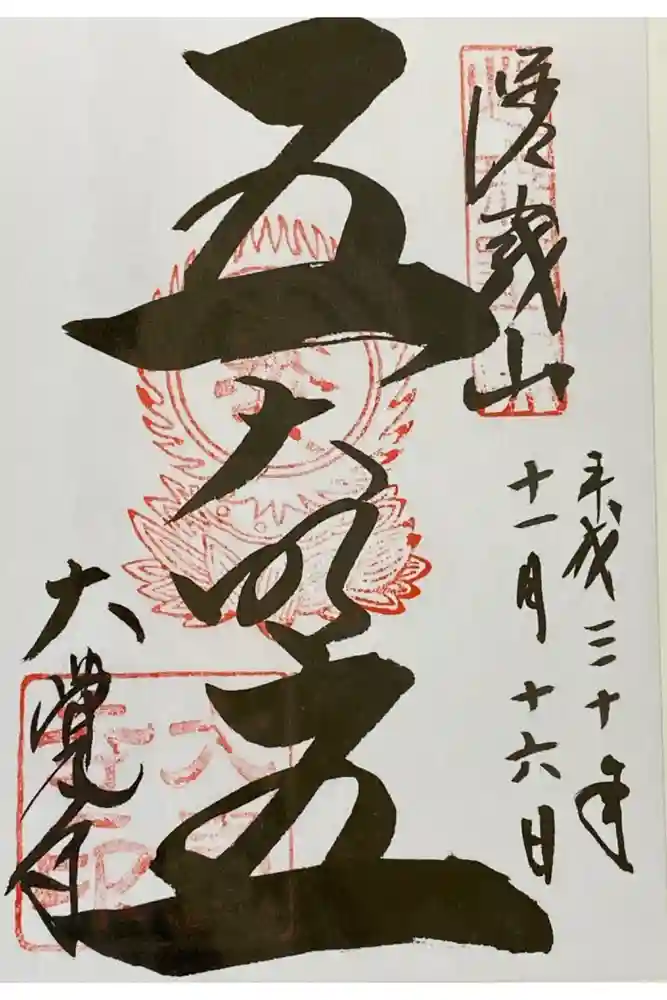 平成三十年
十一月十六日
嵯峨山
五大明王
大覺寺